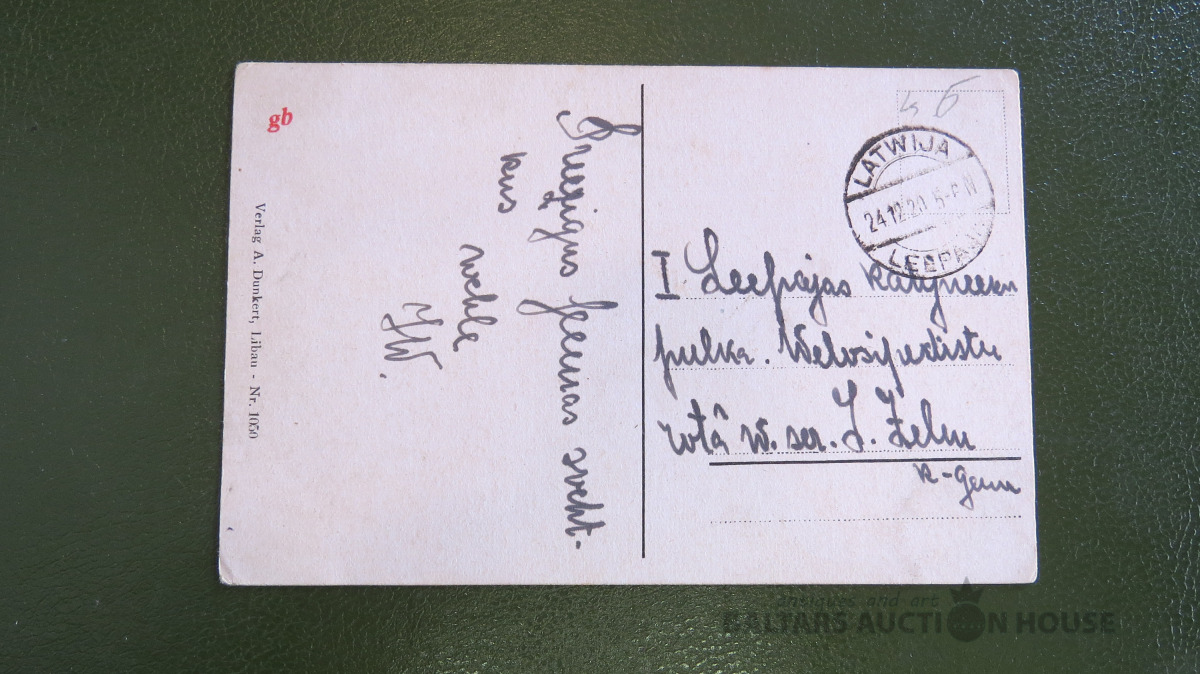 gb
Verlag A. Dunkert, Libau - Nr. 1050
Preezigus seemas sveht-
kus
wehle
JW.
6
LATWIJA
24 12.20
LEEPAJA
I Leepajas kahjneeku
pulka. Welosipedistu
rotâ w. ser. J. Zelm
k-gam
antiques and art
BALTARS AUCTION HOUSE